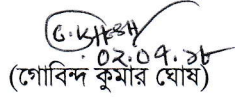 G. KHESH
02.09.18
(গোবিন্দ কুমার ঘোষ)